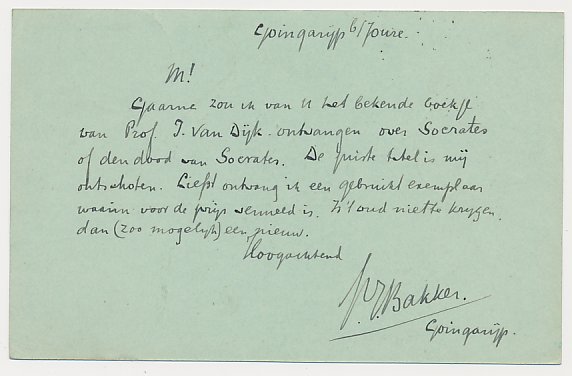 Goingarijp b/Joure.
M!
Gaarne zou ik van U het bekende boekje
van Prof. I. van Dijk ontvangen over Socrates
of den dood van Socrates. De juiste titel is mij
ontschoten. Liefst ontvang ik een gebruikt exemplaar
waarin voor de prijs vermeld is. Is 't oud niet te krijgen,
dan (zoo mogelijk) een nieuw.
Hoogachtend
Bakker.
Goingarijp.